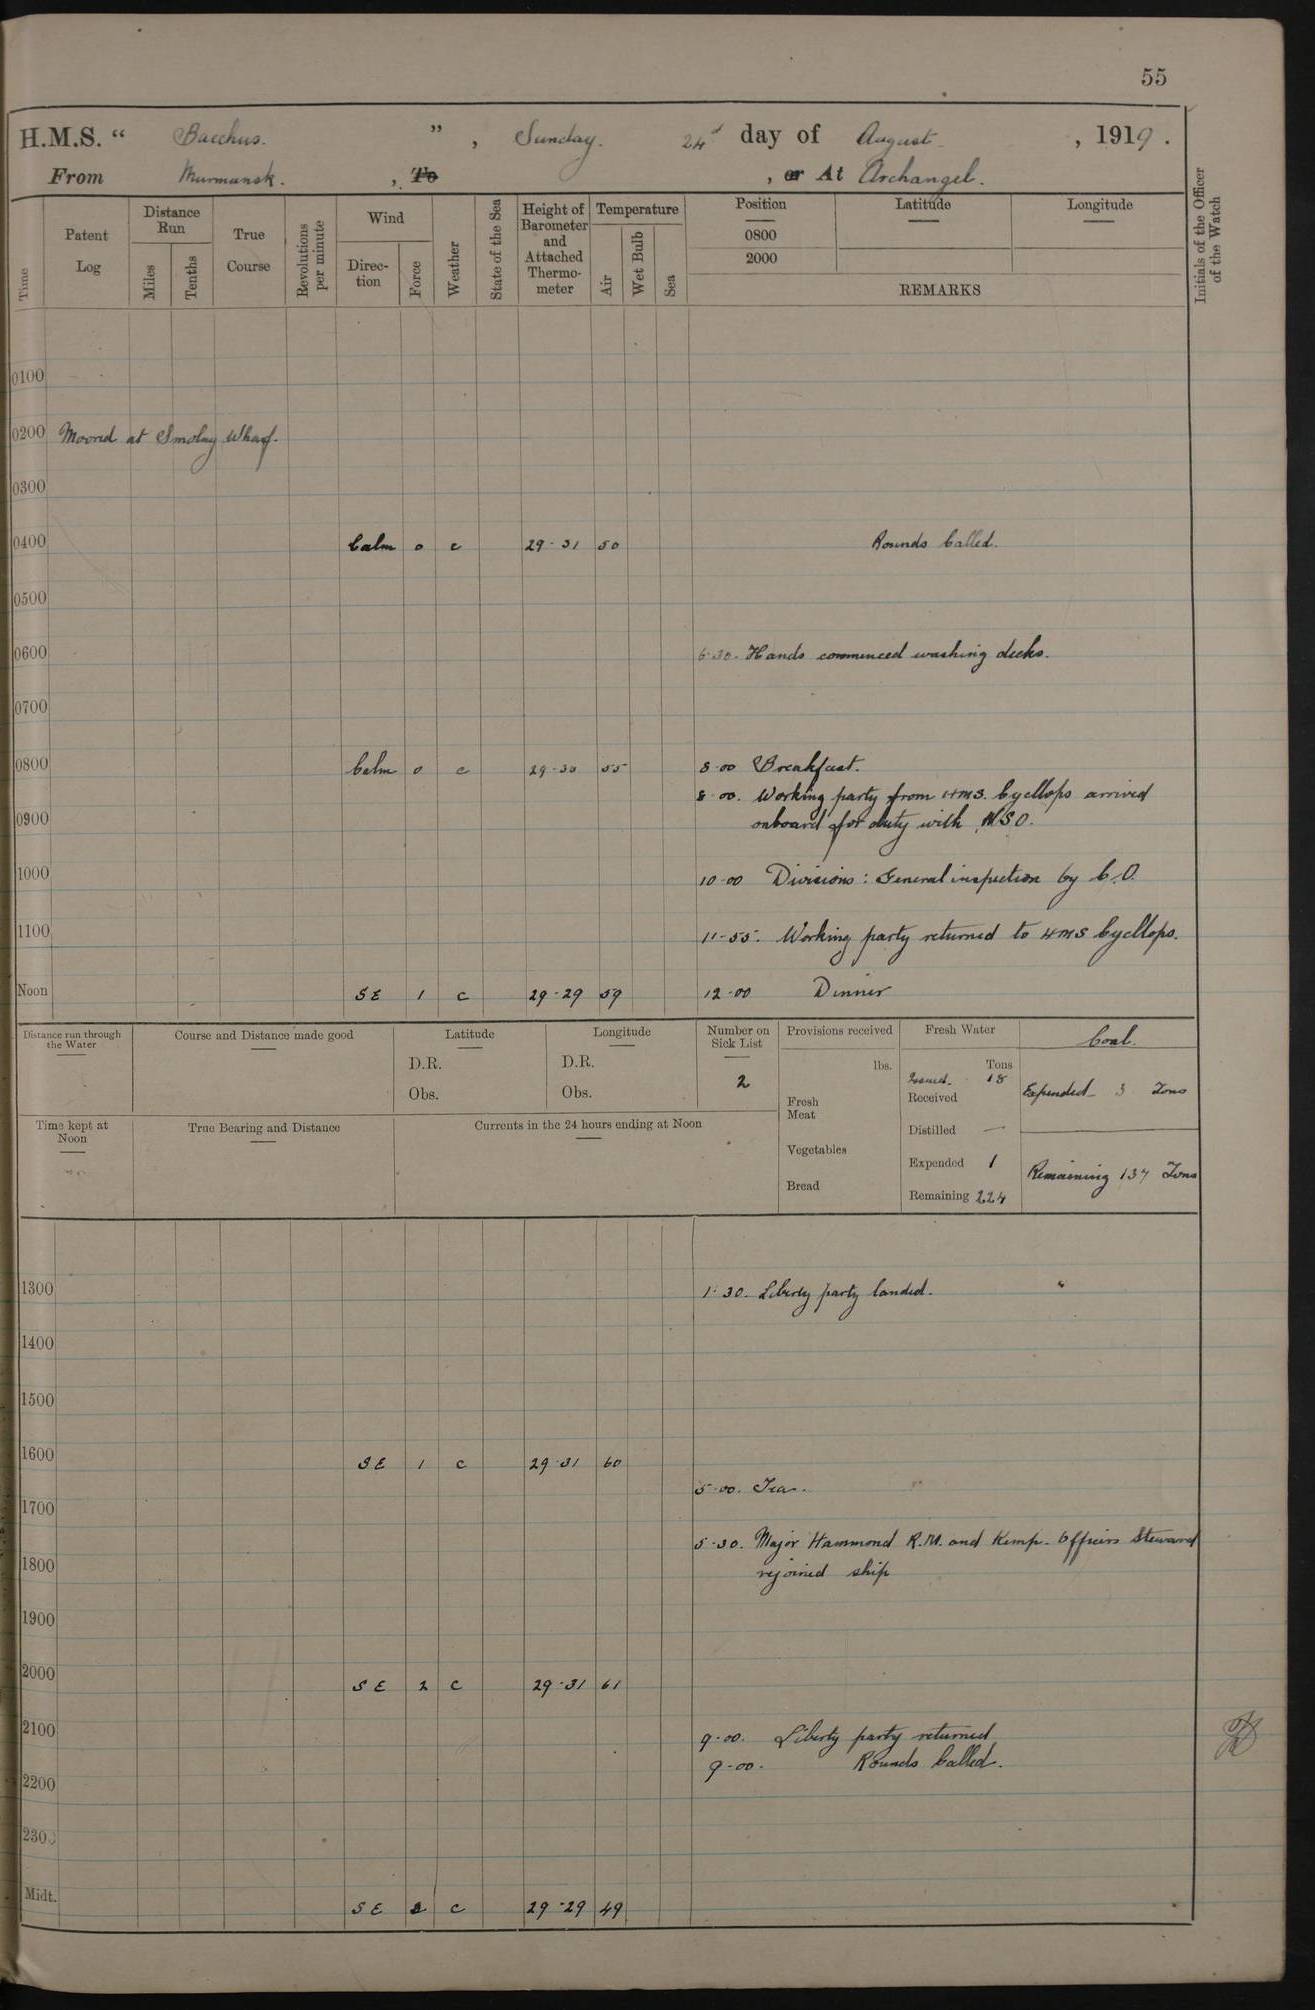 55
H.M.S. " Bacchus. ", Sunday. 24th day of August, 1919.
From Murmansk., To , or At Archangel.
Time
Patent Log
Distance Run
Miles
Tenths
True Course
Revolutions per minute
Wind
Direction
Force
Weather
State of the Sea
Height of Barometer and Attached Thermometer
Temperature
Air
Wet Bulb
Sea
Position
0800
2000
Latitude
Longitude
REMARKS
Initials of the Officer of the Watch
0100
0200 Moored at Smolny Wharf.
0300
0400 Calm 0 c 29-31 50 Rounds Called.
0500
0600 6-30. Hands commenced washing decks.
0700
0800 Calm 0 c 29-30 55 8-00 Breakfast.
8-00. Working party from HMS. Cycllops arrived
0900 onboard for duty with N.S.O.
1000 10-00 Divisions: General inspection by C.O.
1100 11-55. Working party returned to HMS Cycllops.
Noon SE 1 c 29-29 59 12-00 Dinner
Distance run through the Water
Course and Distance made good
Latitude
D.R.
Obs.
Longitude
D.R.
Obs.
Number on Sick List
2
Provisions received
lbs.
Fresh Meat
Vegetables
Bread
Fresh Water
Tons
Issued. 18
Received
Distilled —
Expended 1
Remaining 224
Coal.
Expended 3 Tons
Remaining 137 Tons
Time kept at Noon
True Bearing and Distance
Currents in the 24 hours ending at Noon
1300 1-30. Liberty party landed.
1400
1500
1600 SE 1 c 29-31 60
5-00. Tea.
1700
5-30. Major Hammond R.M. and Kemp. Officers Steward
1800 rejoined ship
1900
2000 SE 2 c 29-31 61
2100 9-00. Liberty party returned
9-00. Rounds Called.
2200
2300
Midt. SE 2 c 29-29 49